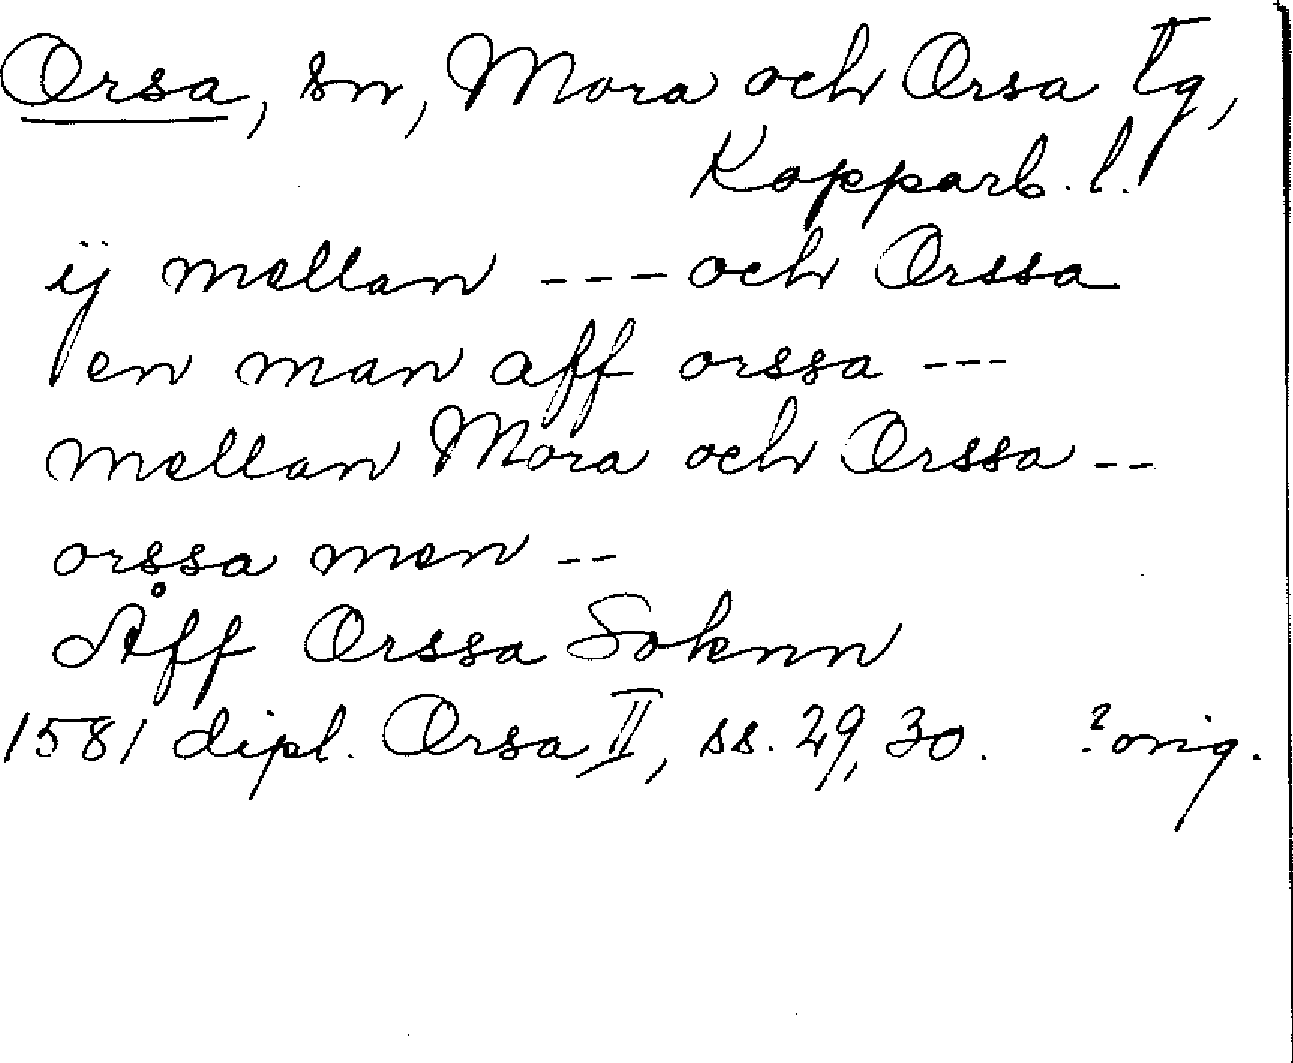 Orsa, sn, Mora och Orsa tg,
Kopparb. l.
ij mellan --- och Orssa
en man aff orssa ---
mellan Mora och Orssa --
orssa men --
Åff Orssa Soknn
1581 dipl. Orsa II, ss. 29, 30. ? orig.